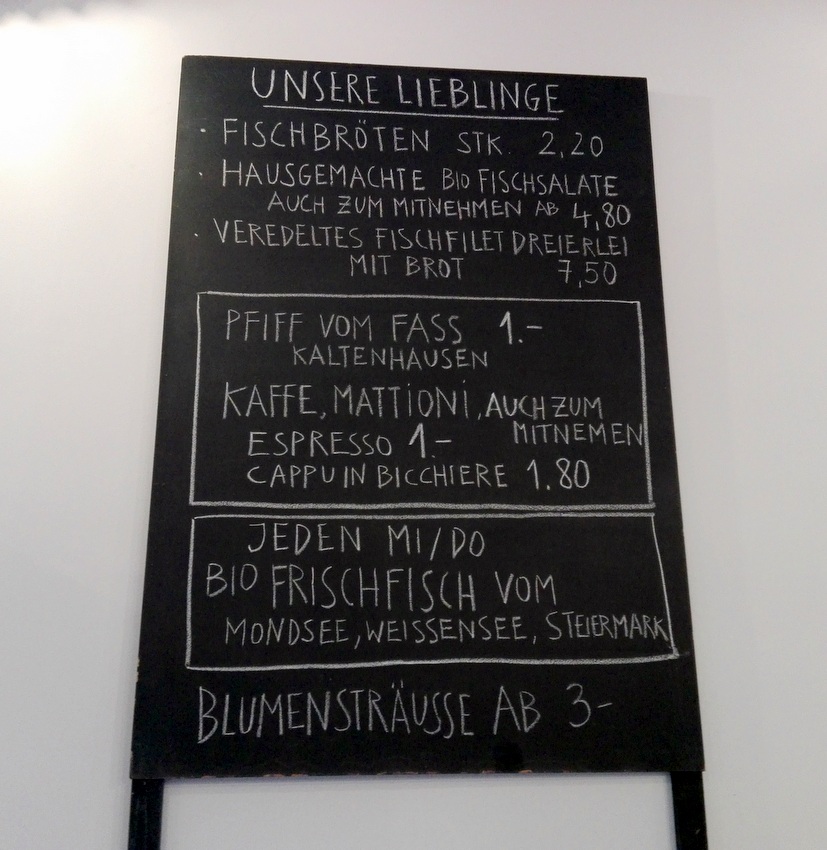 UNSERE LIEBLINGE
· FISCHBRÖTEN STK. 2,20
· HAUSGEMACHTE BIO FISCHSALATE
AUCH ZUM MITNEHMEN AB 4,80
· VEREDELTES FISCHFILET DREIERLEI
MIT BROT 7,50
PFIFF VOM FASS 1.-
KALTENHAUSEN
KAFFE, MATTIONI, AUCH ZUM
MITNEMEN
ESPRESSO 1.-
CAPPU IN BICCHIERE 1.80
JEDEN MI/DO
BIO FRISCHFISCH VOM
MONDSEE, WEISSENSEE, STEIERMARK
BLUMENSTRÄUSSE AB 3-